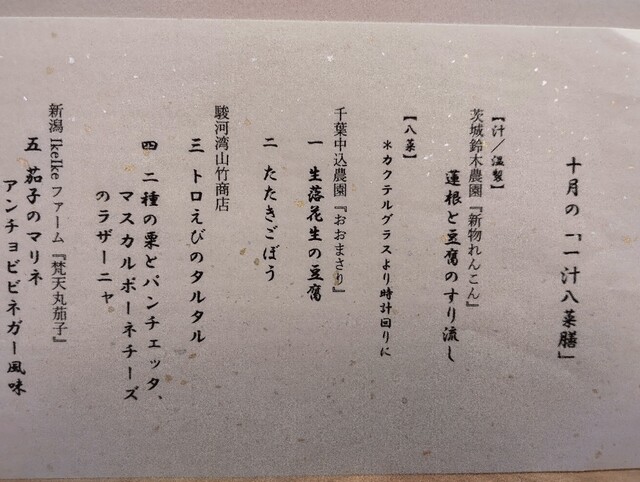 十月の「一汁八菜膳」
【汁／温製】
茨城鈴木農園『新物れんこん』
蓮根と豆腐のすり流し
【八菜】
＊カクテルグラスより時計回りに
千葉中込農園『おおまさり』
一 生落花生の豆腐
二 たたきごぼう
駿河湾山竹商店
三 トロえびのタルタル
四 二種の栗とパンチェッタ、
マスカルポーネチーズ
のラザーニャ
新潟 IkeIke ファーム『梵天丸茄子』
五 茄子のマリネ
アンチョビビネガー風味